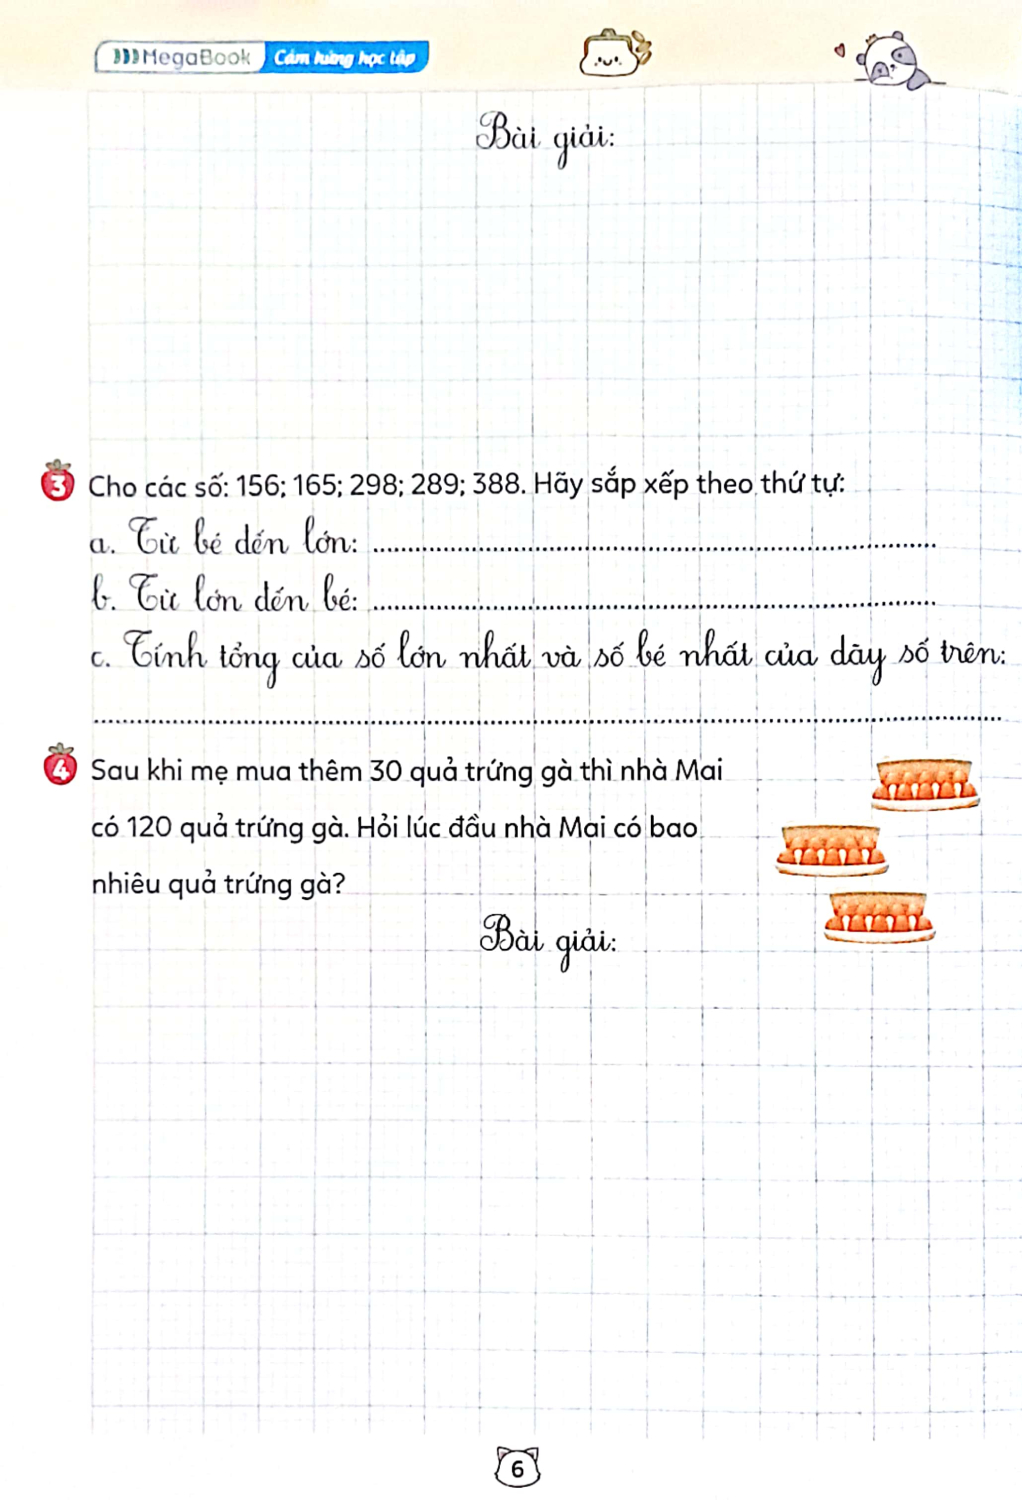 MegaBook Cảm hứng học tập
Bài giải:
3 Cho các số: 156; 165; 298; 289; 388. Hãy sắp xếp theo thứ tự:
a. Từ bé đến lớn:
b. Từ lớn đến bé:
c. Tính tổng của số lớn nhất và số bé nhất của dãy số trên:
4 Sau khi mẹ mua thêm 30 quả trứng gà thì nhà Mai
có 120 quả trứng gà. Hỏi lúc đầu nhà Mai có bao
nhiêu quả trứng gà?
Bài giải:
6